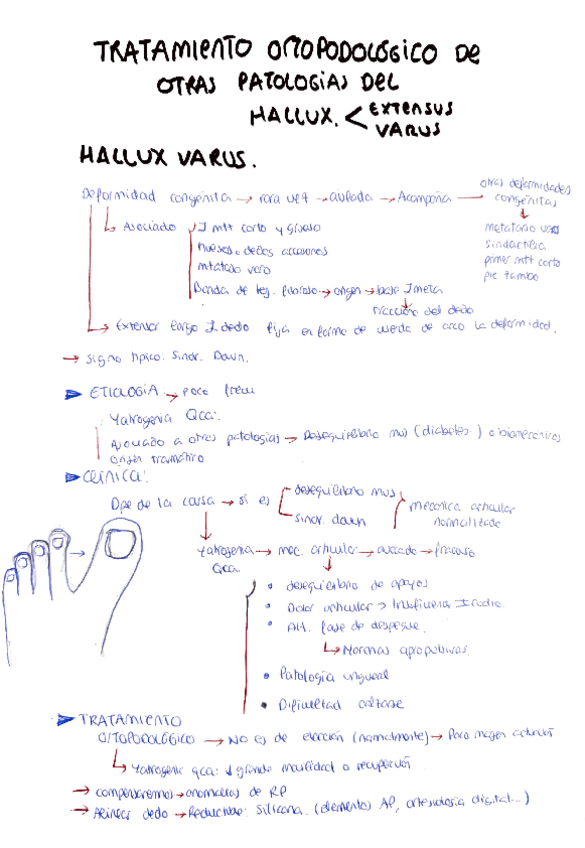 TRATAMIENTO ORTOPODOLÓGICO DE
OTRAS PATOLOGÍAS DEL
HALLUX. < EXTENSUS
VARUS
HALLUX VARUS.
Deformidad congénita → rara vez → aislada → Acompaña → otras deformidades congénitas
metatarso varo
sindactilia
primer mtt corto
pie zambo
Asociado I mtt corto y grueso
huesos o dedos accesorios
mtatarso varo
Banda de tej. fibroso → origen → base I meta
tracción del dedo
→ Extensor largo I dedo fija en forma de cuerda de arco la deformidad.
→ Signo típico: Sindr. Down.
ETIOLOGÍA → poco frecu
Yatrogenia Qca.
Asociado a otras patologías → Desequilibrio mus (diabetes..) o biomecánicos
Origen traumático
CLÍNICA:
Dpe de la causa → si es desequilibrio mus
sindr. down
mecánica articular
normalizada
Yatrogenia → mec. articular → avocada → fracaso
Qca.
• desequilibrio de apoyos
• Dolor articular → Insuficiencia I radio
• Alt. fase de despegue.
→ Normas apropulsivas.
• Patología ungueal
• Dificultad calzarse
TRATAMIENTO
ORTOPODOLÓGICO → No es de elección (normalmente) → Poco margen actuación
→ Yatrogenia qca: ↓ grande movilidad o recuperación
→ compensaremos → anomalías de RP
→ Alinear dedo → Reductible: Silicona. (elementos AP, ortesiología digital...)